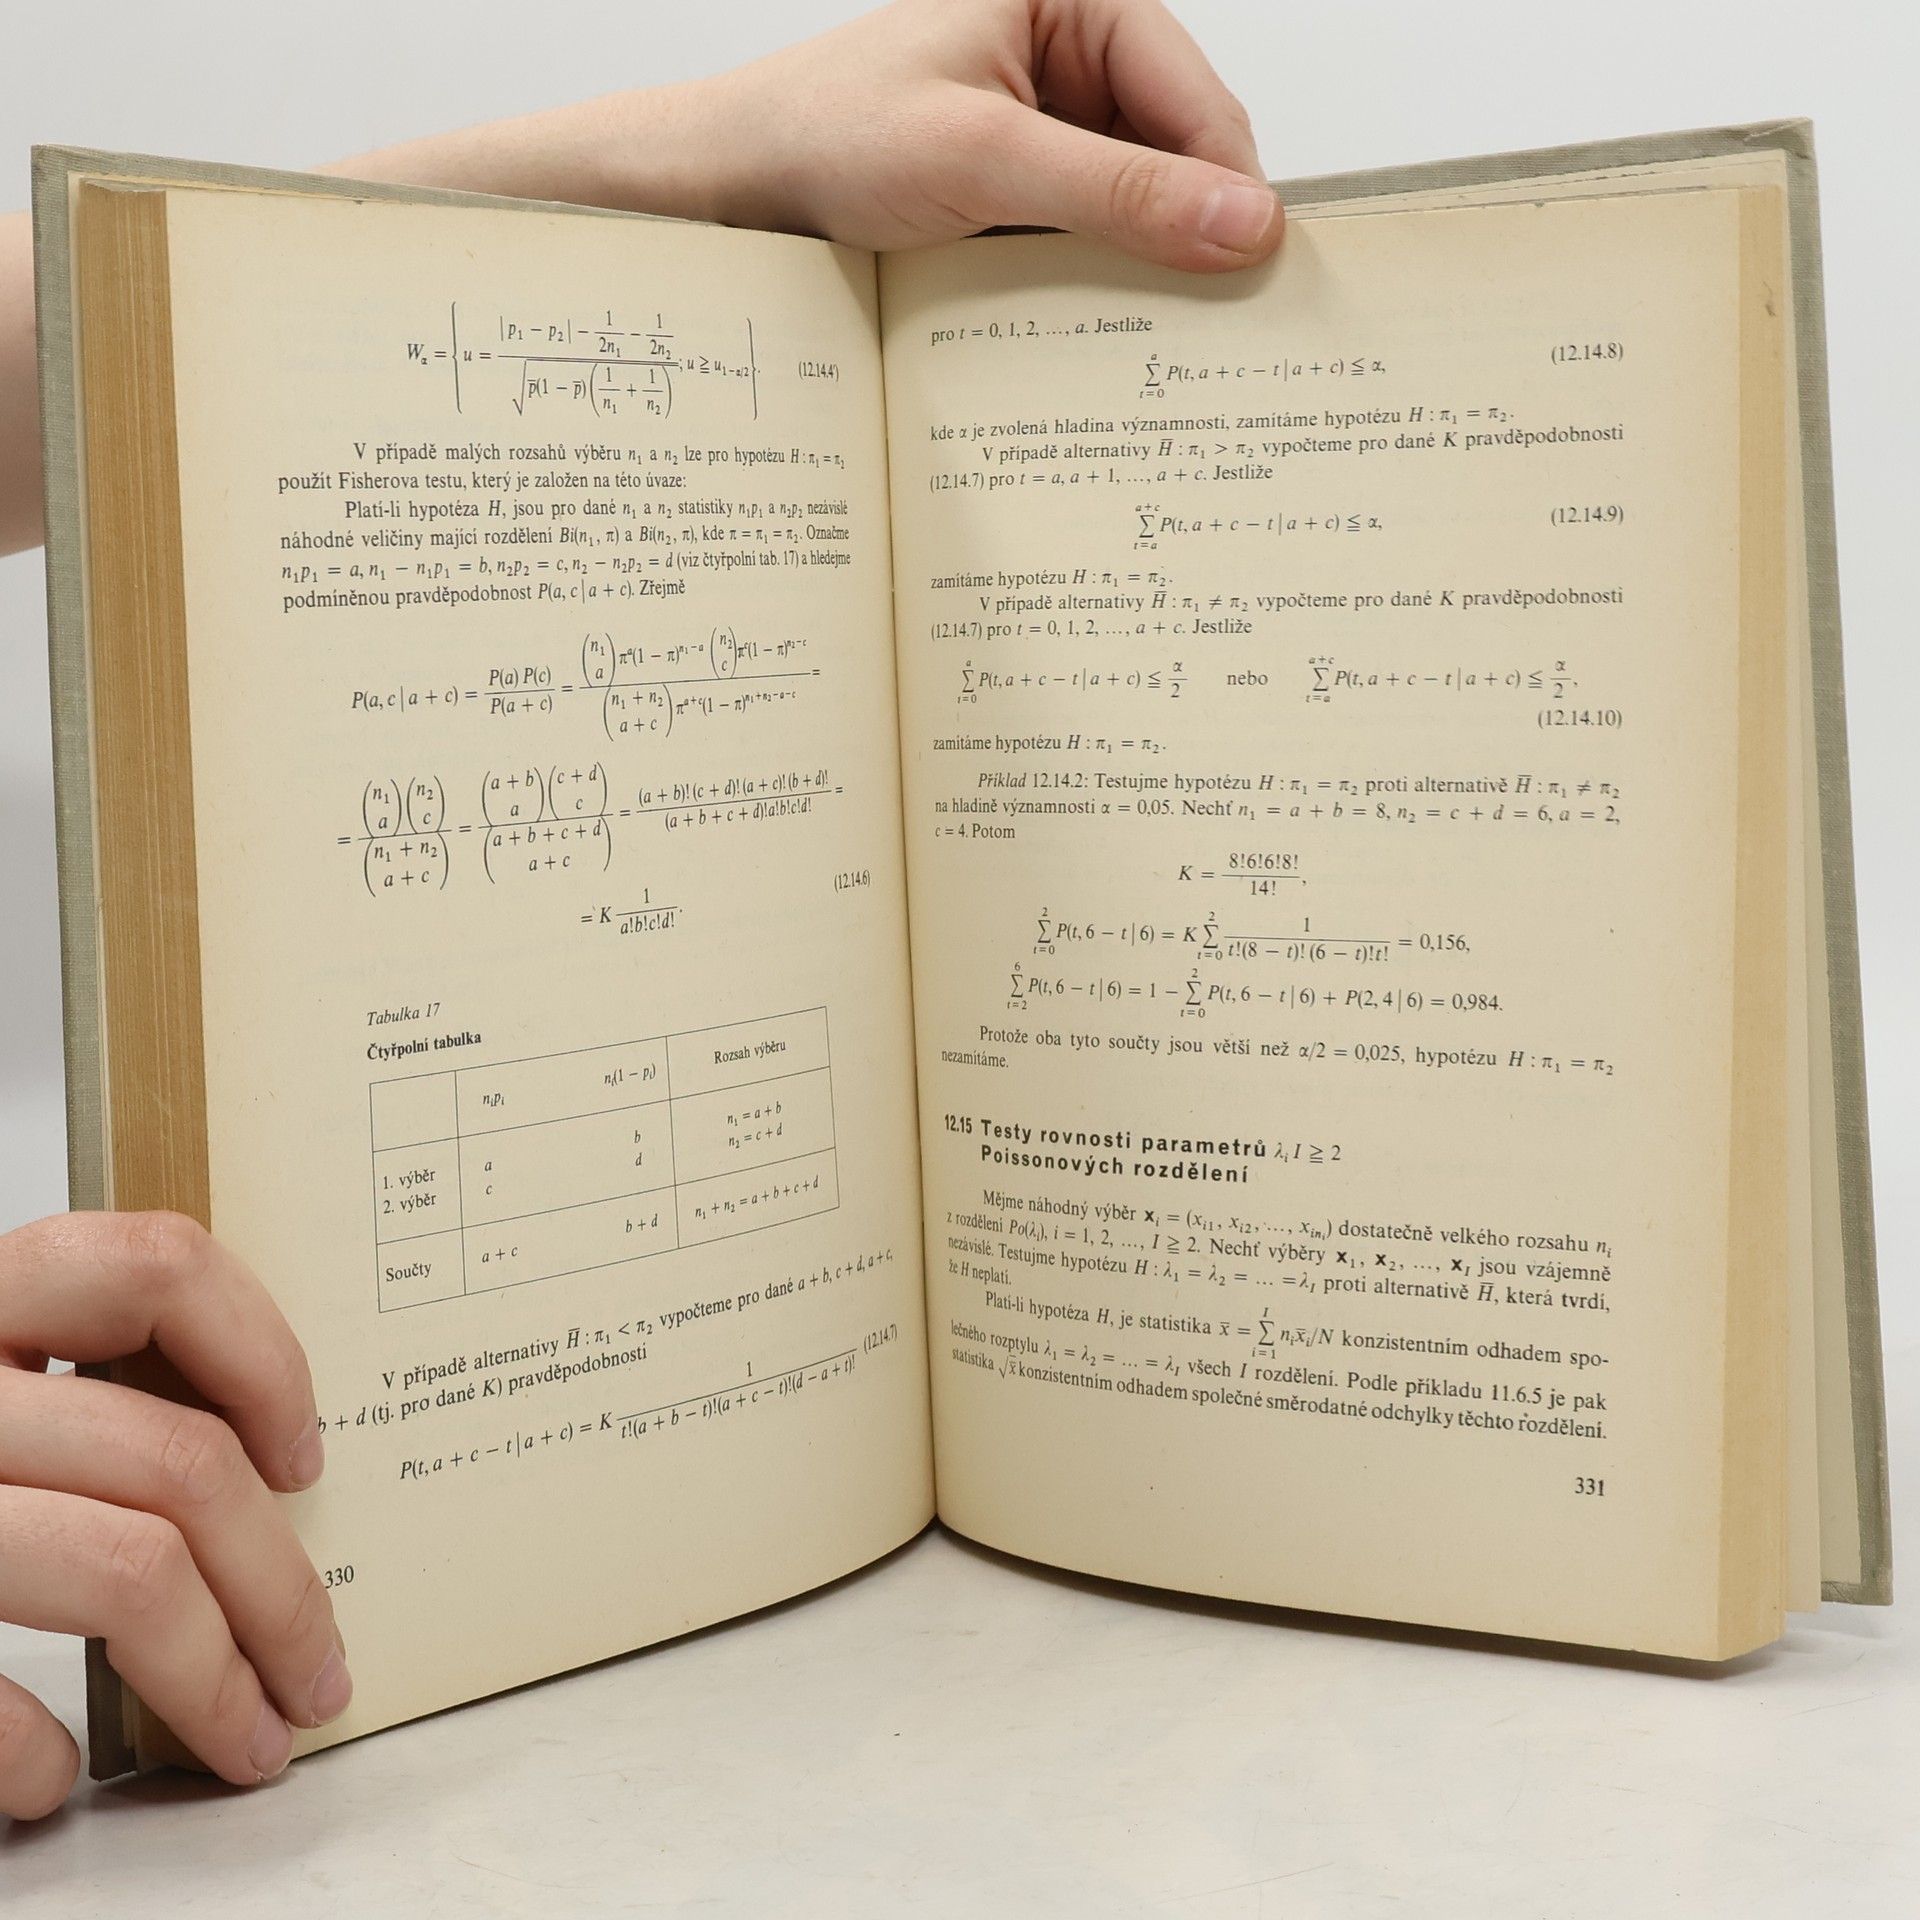 W_α = { u = (|p₁ − p₂| − 1/(2n₁) − 1/(2n₂)) / √(p̄(1 − p̄)(1/n₁ + 1/n₂)) ; u ≧ u₁₋α/₂ }. (12.14.4')
V případě malých rozsahů výběru n₁ a n₂ lze pro hypotézu H : π₁ = π₂
použít Fisherova testu, který je založen na této úvaze:
Platí-li hypotéza H, jsou pro dané n₁ a n₂ statistiky n₁p₁ a n₂p₂ nezávislé
náhodné veličiny mající rozdělení Bi(n₁, π) a Bi(n₂, π), kde π = π₁ = π₂. Označme
n₁p₁ = a, n₁ − n₁p₁ = b, n₂p₂ = c, n₂ − n₂p₂ = d (viz čtyřpolní tab. 17) a hledejme
podmíněnou pravděpodobnost P(a, c | a + c). Zřejmě
P(a, c | a + c) = P(a) P(c) / P(a + c) = (n₁ a) πᵃ(1 − π)ⁿ¹⁻ᵃ (n₂ c) πᶜ(1 − π)ⁿ²⁻ᶜ / (n₁ + n₂ a + c) πᵃ⁺ᶜ(1 − π)ⁿ¹⁺ⁿ²⁻ᵃ⁻ᶜ =
= (n₁ a)(n₂ c) / (n₁ + n₂ a + c) = (a + b a)(c + d c) / (a + b + c + d a + c) = (a + b)! (c + d)! (a + c)! (b + d)! / (a + b + c + d)!a!b!c!d! =
= K 1 / a!b!c!d! . (12.14.6)
Tabulka 17
Čtyřpolní tabulka
nᵢpᵢ nᵢ(1 − pᵢ) Rozsah výběru
1. výběr a b n₁ = a + b
2. výběr c d n₂ = c + d
Součty a + c b + d n₁ + n₂ = a + b + c + d
V případě alternativy H̄ : π₁ < π₂ vypočteme pro dané a + b, c + d, a + c,
b + d (tj. pro dané K) pravděpodobnosti
P(t, a + c − t | a + c) = K 1 / t!(a + b − t)!(a + c − t)!(d − a + t)! (12.14.7)
330
pro t = 0, 1, 2, ..., a. Jestliže
∑ₜ₌₀ᵃ P(t, a + c − t | a + c) ≦ α, (12.14.8)
kde α je zvolená hladina významnosti, zamítáme hypotézu H : π₁ = π₂.
V případě alternativy H̄ : π₁ > π₂ vypočteme pro dané K pravděpodobnosti
(12.14.7) pro t = a, a + 1, ..., a + c. Jestliže
∑ₜ₌ₐᵃ⁺ᶜ P(t, a + c − t | a + c) ≦ α, (12.14.9)
zamítáme hypotézu H : π₁ = π₂.
V případě alternativy H̄ : π₁ ≠ π₂ vypočteme pro dané K pravděpodobnosti
(12.14.7) pro t = 0, 1, 2, ..., a + c. Jestliže
∑ₜ₌₀ᵃ P(t, a + c − t | a + c) ≦ α/2 nebo ∑ₜ₌ₐᵃ⁺ᶜ P(t, a + c − t | a + c) ≦ α/2,
(12.14.10)
zamítáme hypotézu H : π₁ = π₂.
Příklad 12.14.2: Testujme hypotézu H : π₁ = π₂ proti alternativě H̄ : π₁ ≠ π₂
na hladině významnosti α = 0,05. Nechť n₁ = a + b = 8, n₂ = c + d = 6, a = 2,
c = 4. Potom
K = 8!6!6!8! / 14! ,
∑ₜ₌₀² P(t, 6 − t | 6) = K ∑ₜ₌₀² 1 / t!(8 − t)! (6 − t)!t! = 0,156,
∑ₜ₌₂⁶ P(t, 6 − t | 6) = 1 − ∑ₜ₌₀² P(t, 6 − t | 6) + P(2, 4 | 6) = 0,984.
Protože oba tyto součty jsou větší než α/2 = 0,025, hypotézu H : π₁ = π₂
nezamítáme.
12.15 Testy rovnosti parametrů λᵢ I ≧ 2
Poissonových rozdělení
Mějme náhodný výběr xᵢ = (xᵢ₁, xᵢ₂, ..., xᵢₙᵢ) dostatečně velkého rozsahu nᵢ
z rozdělení Po(λᵢ), i = 1, 2, ..., I ≧ 2. Nechť výběry x₁, x₂, ..., x_I jsou vzájemně
nezávislé. Testujme hypotézu H : λ₁ = λ₂ = ... = λ_I proti alternativě H̄, která tvrdí,
že H neplatí.
Platí-li hypotéza H, je statistika x̄ = ∑ᵢ₌₁ᴵ nᵢx̄ᵢ/N konzistentním odhadem spo-
lečného rozptylu λ₁ = λ₂ = ... = λ_I všech I rozdělení. Podle příkladu 11.6.5 je pak
statistika √x̄ konzistentním odhadem společné směrodatné odchylky těchto rozdělení.
331